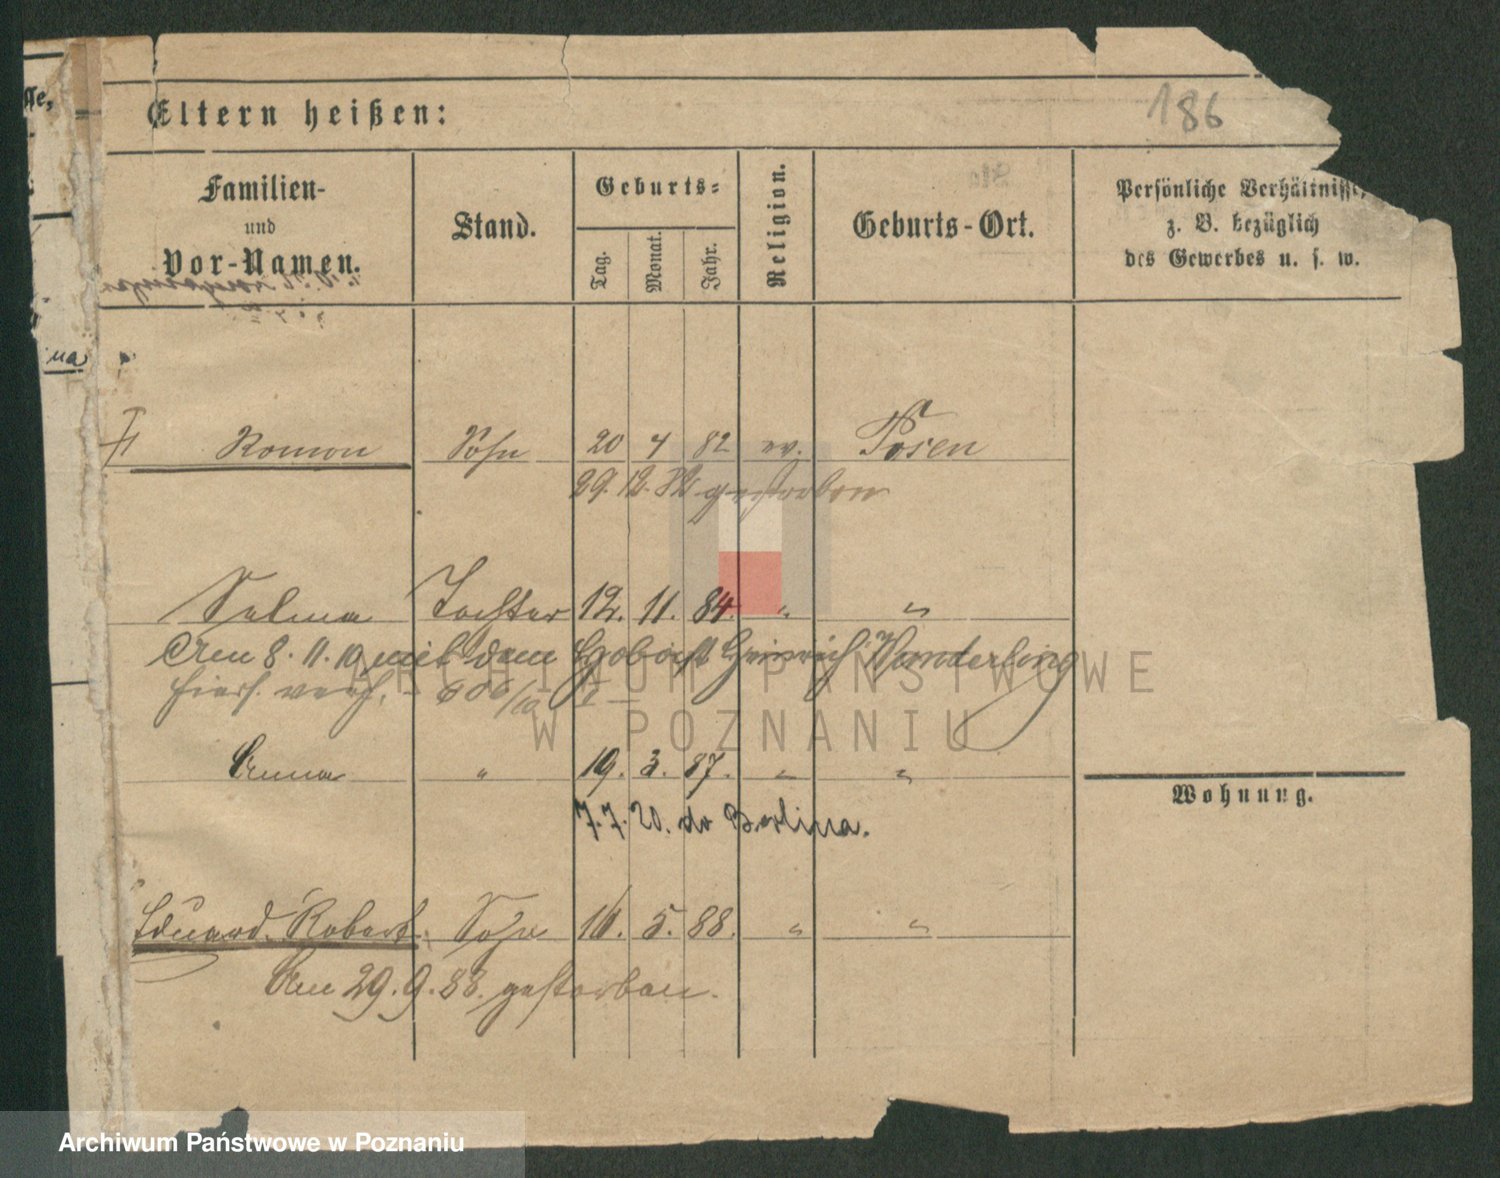 Eltern heißen:
186
Familien-
und
Vor-Namen.
Stand.
Geburts-
Tag.
Monat.
Jahr.
Religion.
Geburts-Ort.
Persönliche Verhältnisse,
z. B. bezüglich
des Gewerbes u. s. w.
Roman Sohn 20 4 82 ev. Posen
29. 12. 82 gestorben
Selma Tochter 12. 11. 84. " "
Am 8. 11. 10 mit dem Heinrich Wunderling
hiers. verh.
Anna " 19. 3. 87. " "
7. 7. 20. do Berlina.
Wohnung.
Eduard Robert Sohn 5. 88. " "
Am 29. 9. 88. gestorben.
ARCHIWUM PAŃSTWOWE
W POZNANIU
Archiwum Państwowe w Poznaniu